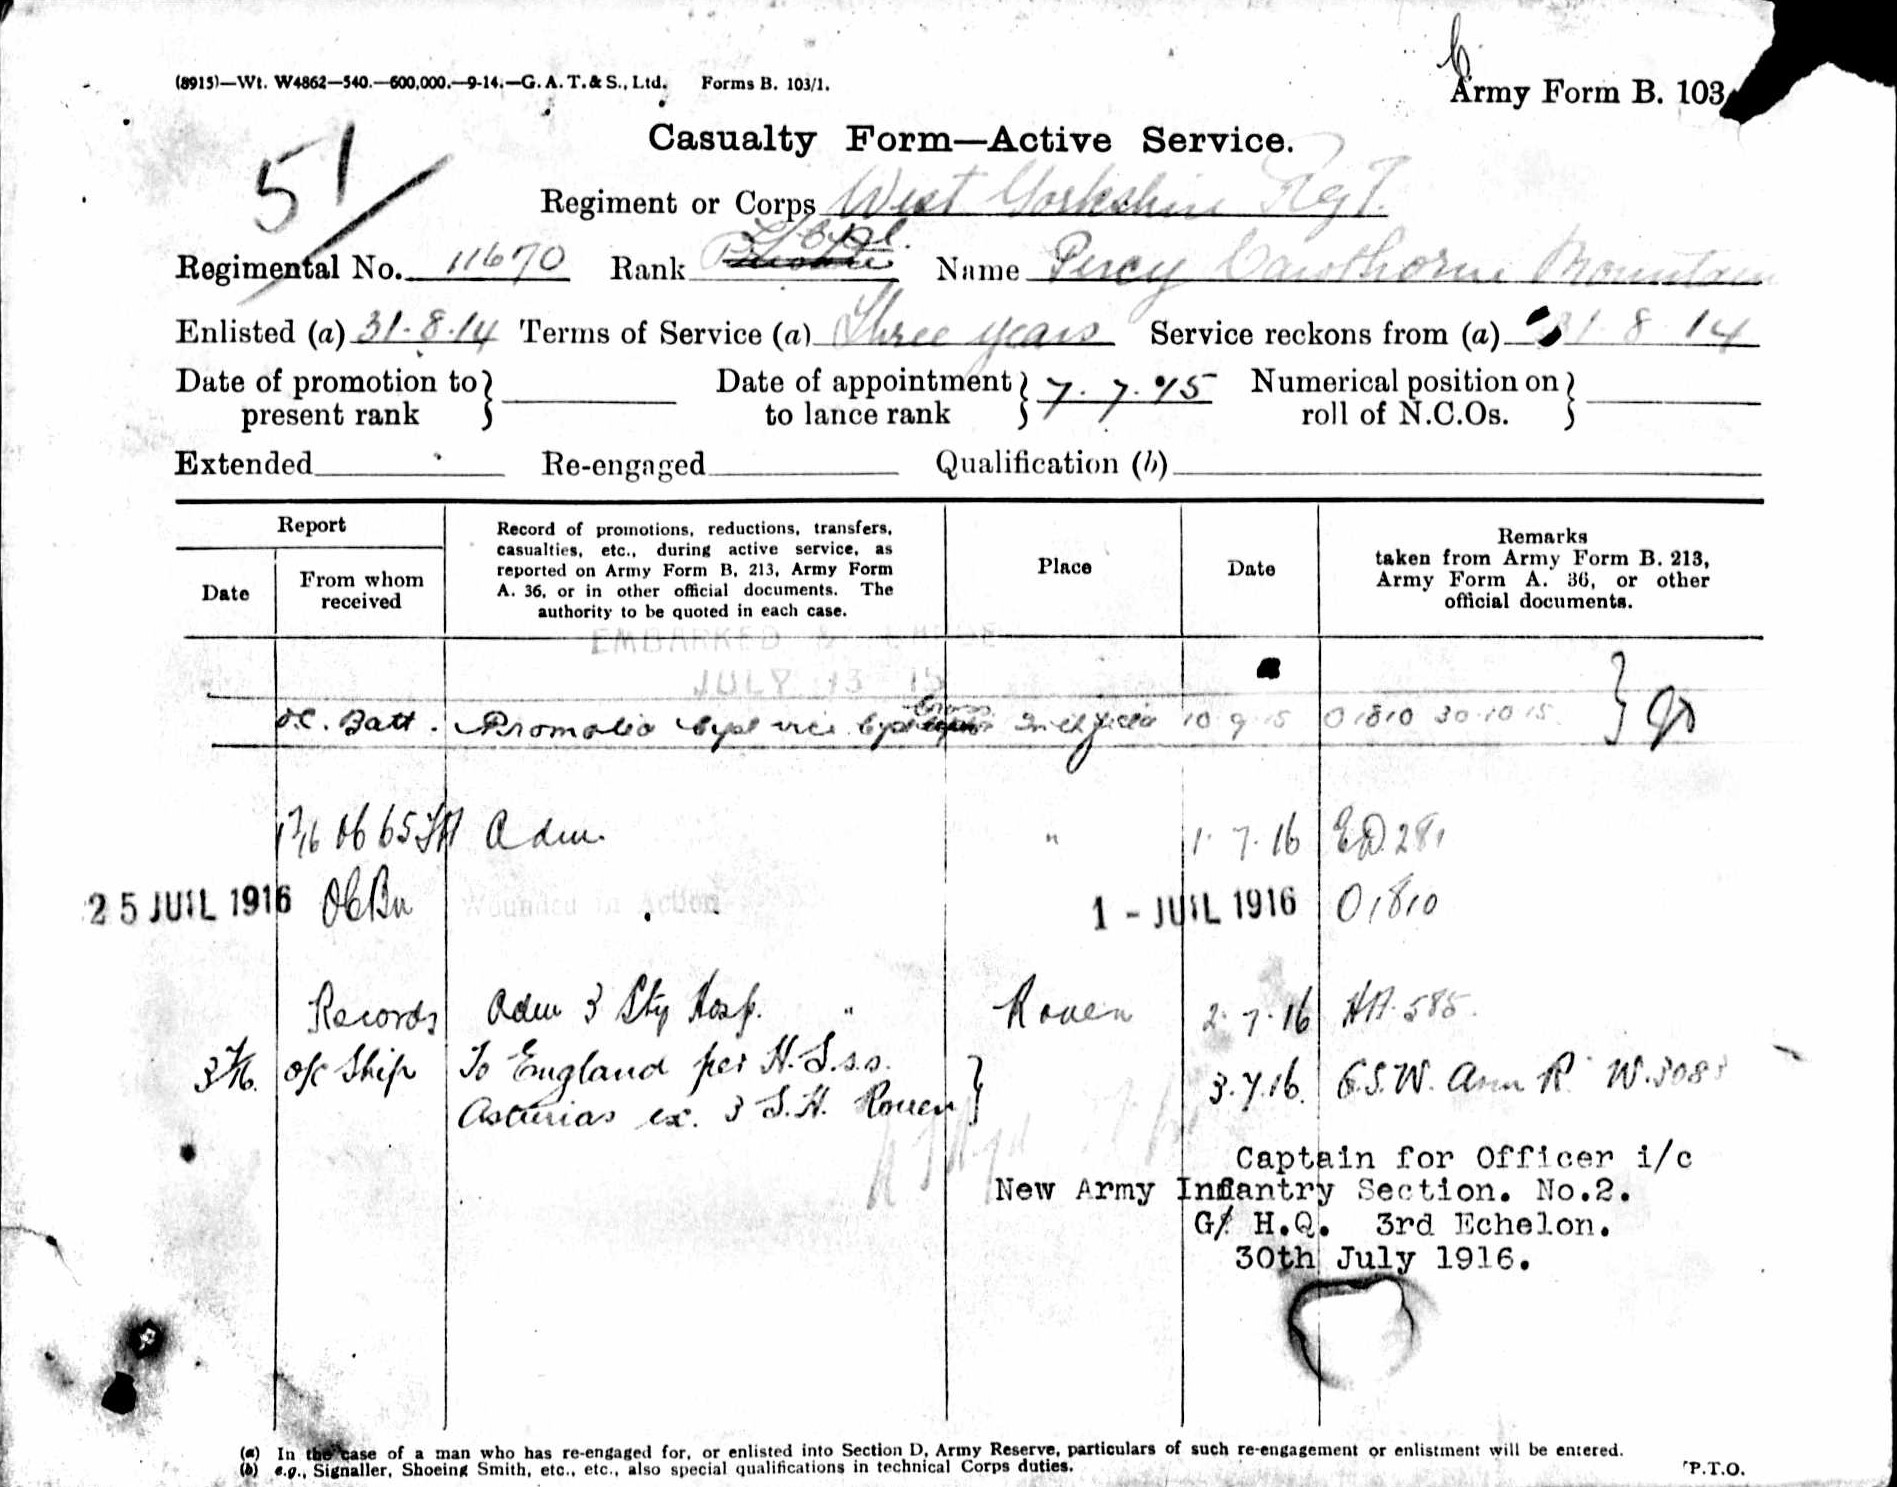 (8915)—Wt. W4862—540.—600,000.—9-14.—G. A. T. & S., Ltd. Forms B. 103/1.
Army Form B. 103
51
Casualty Form—Active Service.
Regiment or Corps West Yorkshire Regt.
Regimental No. 11670 Rank Private L/Cpl. Name Percy Cawthorne Mountain
Enlisted (a) 31.8.14 Terms of Service (a) Three years Service reckons from (a) 31 8 14
Date of promotion to present rank } Date of appointment to lance rank } 7.7.15 Numerical position on roll of N.C.Os. }
Extended Re-engaged Qualification (b)
Report
Date
From whom received
Record of promotions, reductions, transfers,
casualties, etc., during active service, as
reported on Army Form B. 213, Army Form
A. 36, or in other official documents. The
authority to be quoted in each case.
Place
Date
Remarks
taken from Army Form B. 213,
Army Form A. 36, or other
official documents.
EMBARKED &
JULY 13 15
O.C. Batt. Cpl vice Cpl In the field 10 9 15 O1810 30.10.15
1/7/16 Adm " 1.7.16 ED 281
25 JUIL 1916 OC Bn Wounded in Action 1 - JUIL 1916 O1810
Records Adm 3 Sty Hosp. " Rouen 2.7.16 HA.585.
3/7/16. o/c Ship To England per H.S.s.s. 3.7.16. G.S.W. Arm R. W.3083
Asturias ex. 3 S.H. Rouen }
Captain for Officer i/c
New Army Infantry Section. No.2.
G/ H.Q. 3rd Echelon.
30th July 1916.
(a) In the case of a man who has re-engaged for, or enlisted into Section D, Army Reserve, particulars of such re-engagement or enlistment will be entered.
(b) e.g., Signaller, Shoeing Smith, etc., etc., also special qualifications in technical Corps duties.
P.T.O.